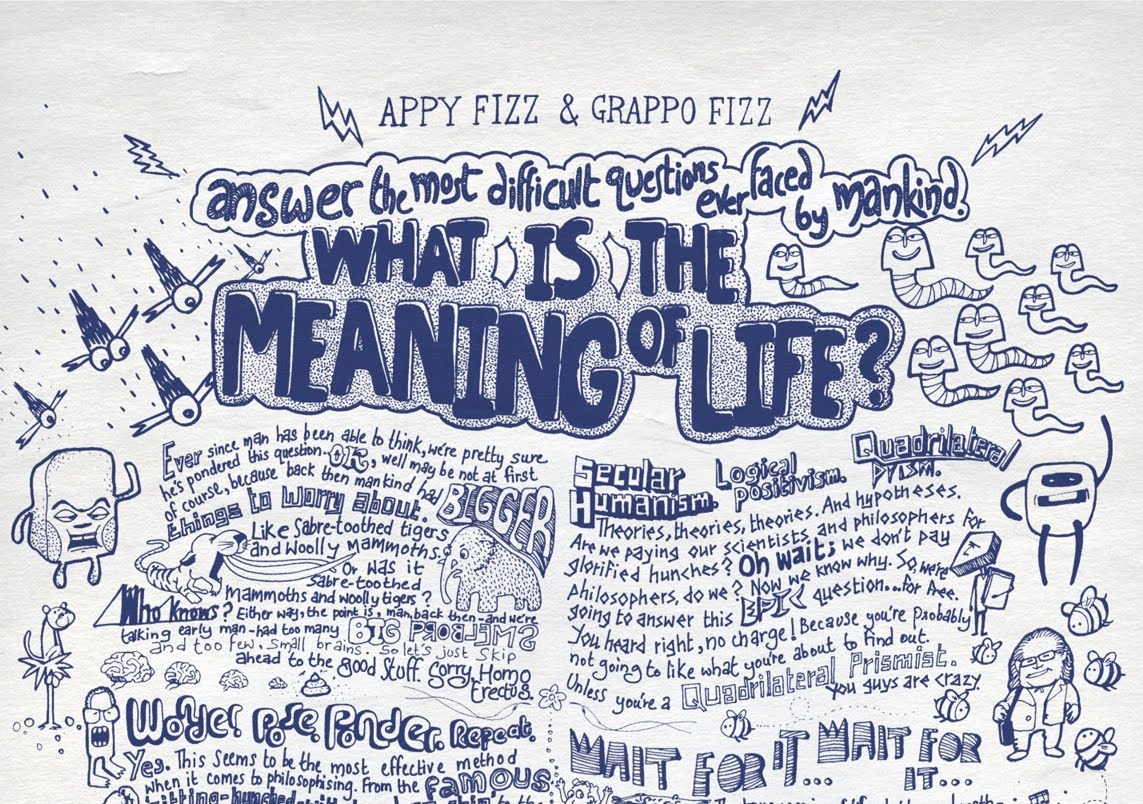 APPY FIZZ & GRAPPO FIZZ
answer the most difficult questions ever faced by mankind.
WHAT IS THE
MEANING OF LIFE?
Ever since man has been able to think, we're pretty sure
he's pondered this question. OK, well may be not at first
of course, because back then mankind had BIGGER
things to worry about.
Like Sabre-toothed tigers
and Woolly mammoths.
Or was it
Sabre-toothed
mammoths and woolly tigers?
Who knows? Either way, the point is, man back then-and we're
talking early man-had too many BIG PROBLEMS
and too few. Small brains. So let's just skip
ahead to the good Stuff. Sorry, Homo
Erectus.
Wonder. Pose. Ponder. Repeat.
Yes. This seems to be the most effective method
when it comes to philosophising. From the famous
Secular
Humanism.
Logical
Positivism.
Quadrilateral
Prism.
Theories, theories, theories. And hypotheses.
Are we paying our scientists and philosophers for
glorified hunches? Oh wait; we don't pay
philosophers, do we? Now we know why. So, we're
going to answer this EPIC question...for free.
You heard right, no charge! Because you're probably
not going to like what you're about to find out.
Unless you're a Quadrilateral Prismist.
You guys are crazy.
WAIT FOR IT WAIT FOR
IT...